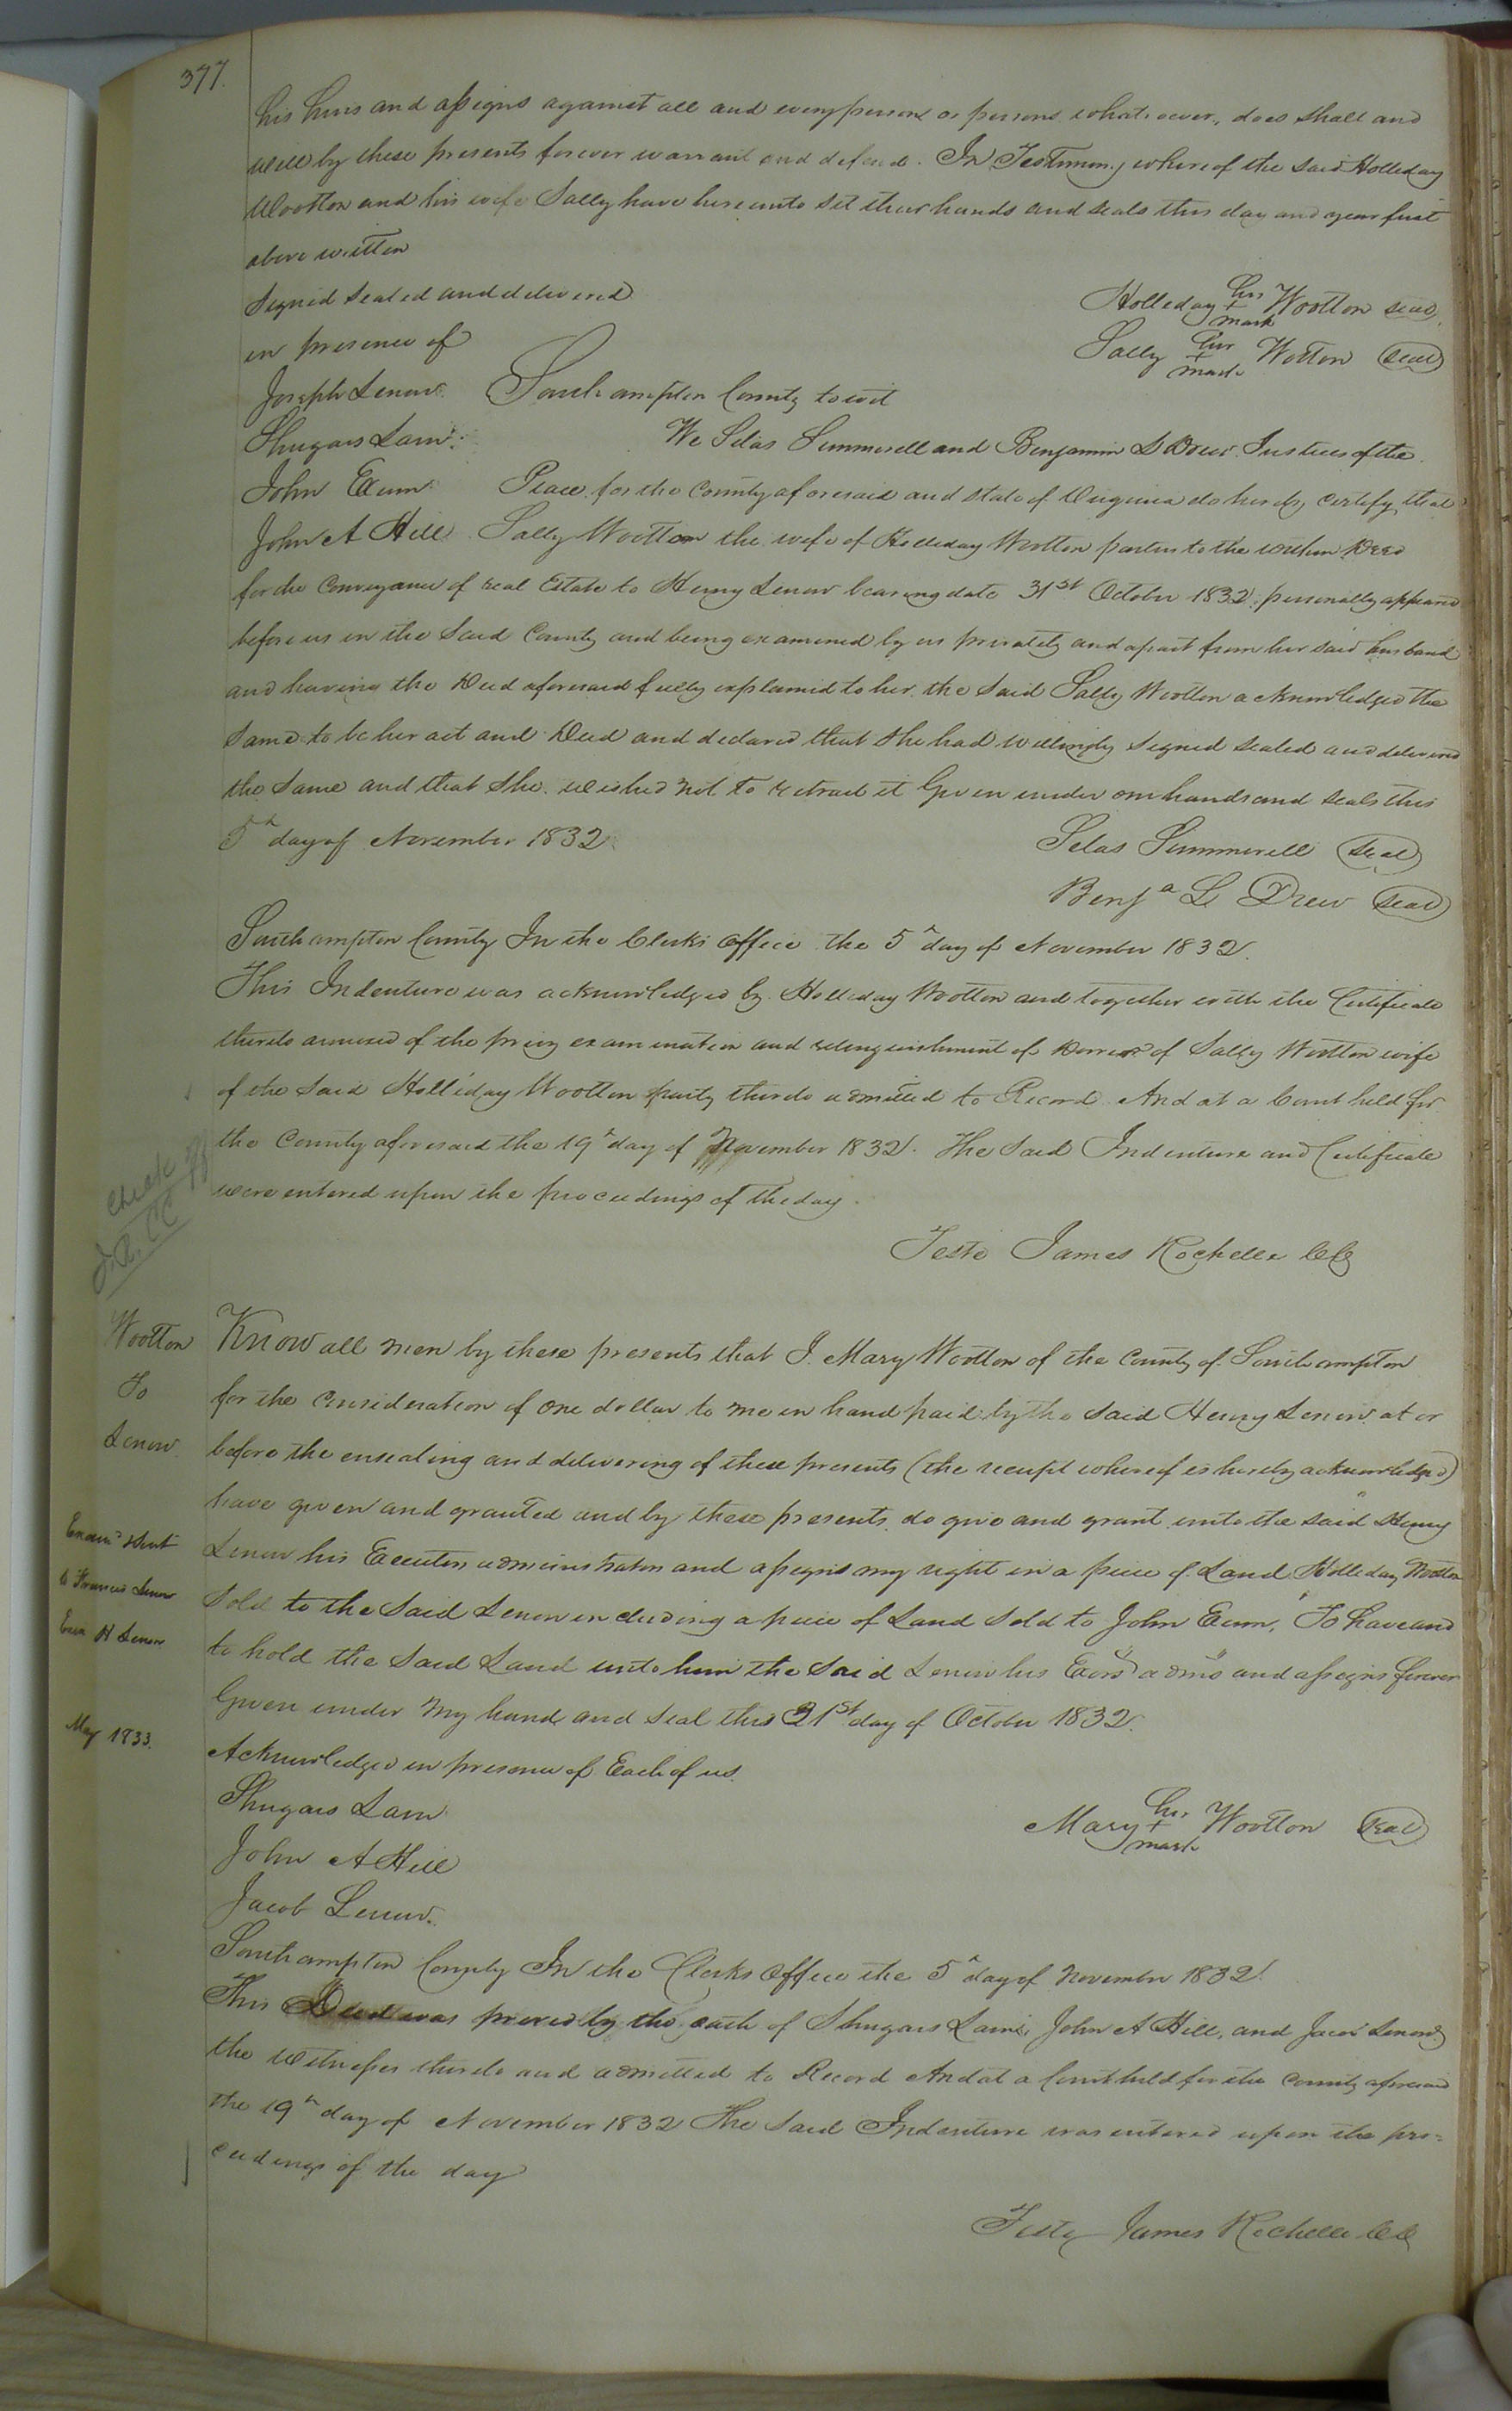 377.
his heirs and assigns against all and every person or persons whatsoever, does shall and
will by these presents forever warrant and defend. In Testimony whereof the said Holleday
Wootton and his wife Sally have hereunto set their hands and seals this day and year first
above written
Signed sealed and delivered
in presence of
Joseph Lenow.
Shugars Lain:
John Exum
John A Hill
Holleday his + mark Wootton seal
Sally her + mark Wotton seal
Southampton County to wit
We Silas Summerell and Benjamin L Drew Justices of the
Peace for the County aforesaid and state of Virginia do hereby certify that
Sally Wootton the wife of Holleday Wootton parties to the within Deed
for the Conveyance of real Estate to Henry Lenow bearing date 31st October 1832, personally appeared
before us in the said County and being examined by us privately and apart from her said husband
and having the Deed aforesaid fully explained to her the said Sally Wootton acknowledged the
same to be her act and Deed and declared that she had willingly signed sealed and delivered
the same and that she wished not to retract it Given under our hands and seals this
5th day of November 1832
Silas Summerell seal
Benja L Drew seal
Southampton County In the Clerks office the 5th day of November 1832.
This Indenture was acknowledged by Holleday Wootton and together with the Certificate
thereto annexed of the privy examination and relinquishment of Dower of Sally Wootton wife
of the said Holliday Wootton party thereto admitted to Record And at a Court held for
the County aforesaid the 19th day of November 1832. The said Indenture and Certificate
were entered upon the proceedings of the day.
Teste James Rochelle CC
Wootton
To
Lenow
Know all men by these presents that I Mary Wootton of the County of Southampton
for the Consideration of one dollar to me in hand paid by the said Henry Lenow at or
before the ensealing and delivering of these presents (the receipt whereof is hereby acknowledged)
have given and granted and by these presents do give and grant unto the said Henry
Lenow his Executors administrators and assigns my right in a piece of Land Holleday Wootton
sold to the said Lenow including a piece of Land sold to John Exum, To have and
to hold the said Land unto him the said Lenow his Exors admrs and assigns forever
Given under my hand and seal this 31st day of October 1832.
Acknowledged in presence of Each of us.
Examd & sent
to Francis Lenow
May 1833.
Shugars Lain
John A Hill
Jacob Lenow.
Mary her + mark Wootton seal
Southampton County In the Clerks office the 5th day of November 1832.
This Deed was proved by the oath of Shugars Lain, John A Hill, and Jacob Lenow
the witnesses thereto and admitted to Record And at a Court held for the County aforesaid
the 19th day of November 1832 The said Indenture was entered upon the pro=
ceedings of the day
Teste James Rochelle CC